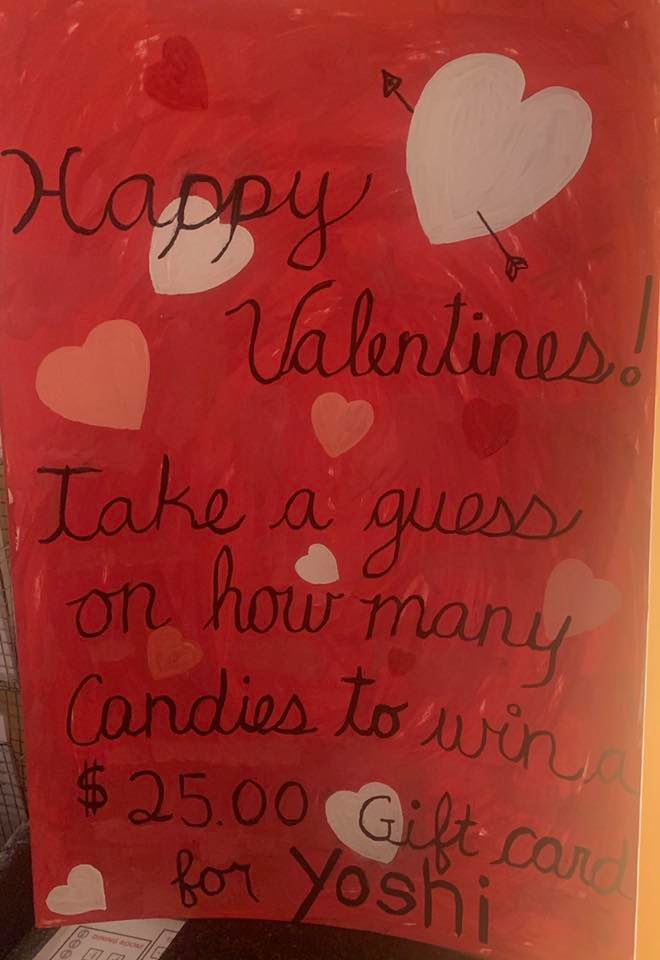 Happy
Valentines!
Take a guess
on how many
Candies to win a
$25.00 Gift card
for Yoshi
DINING ROOM